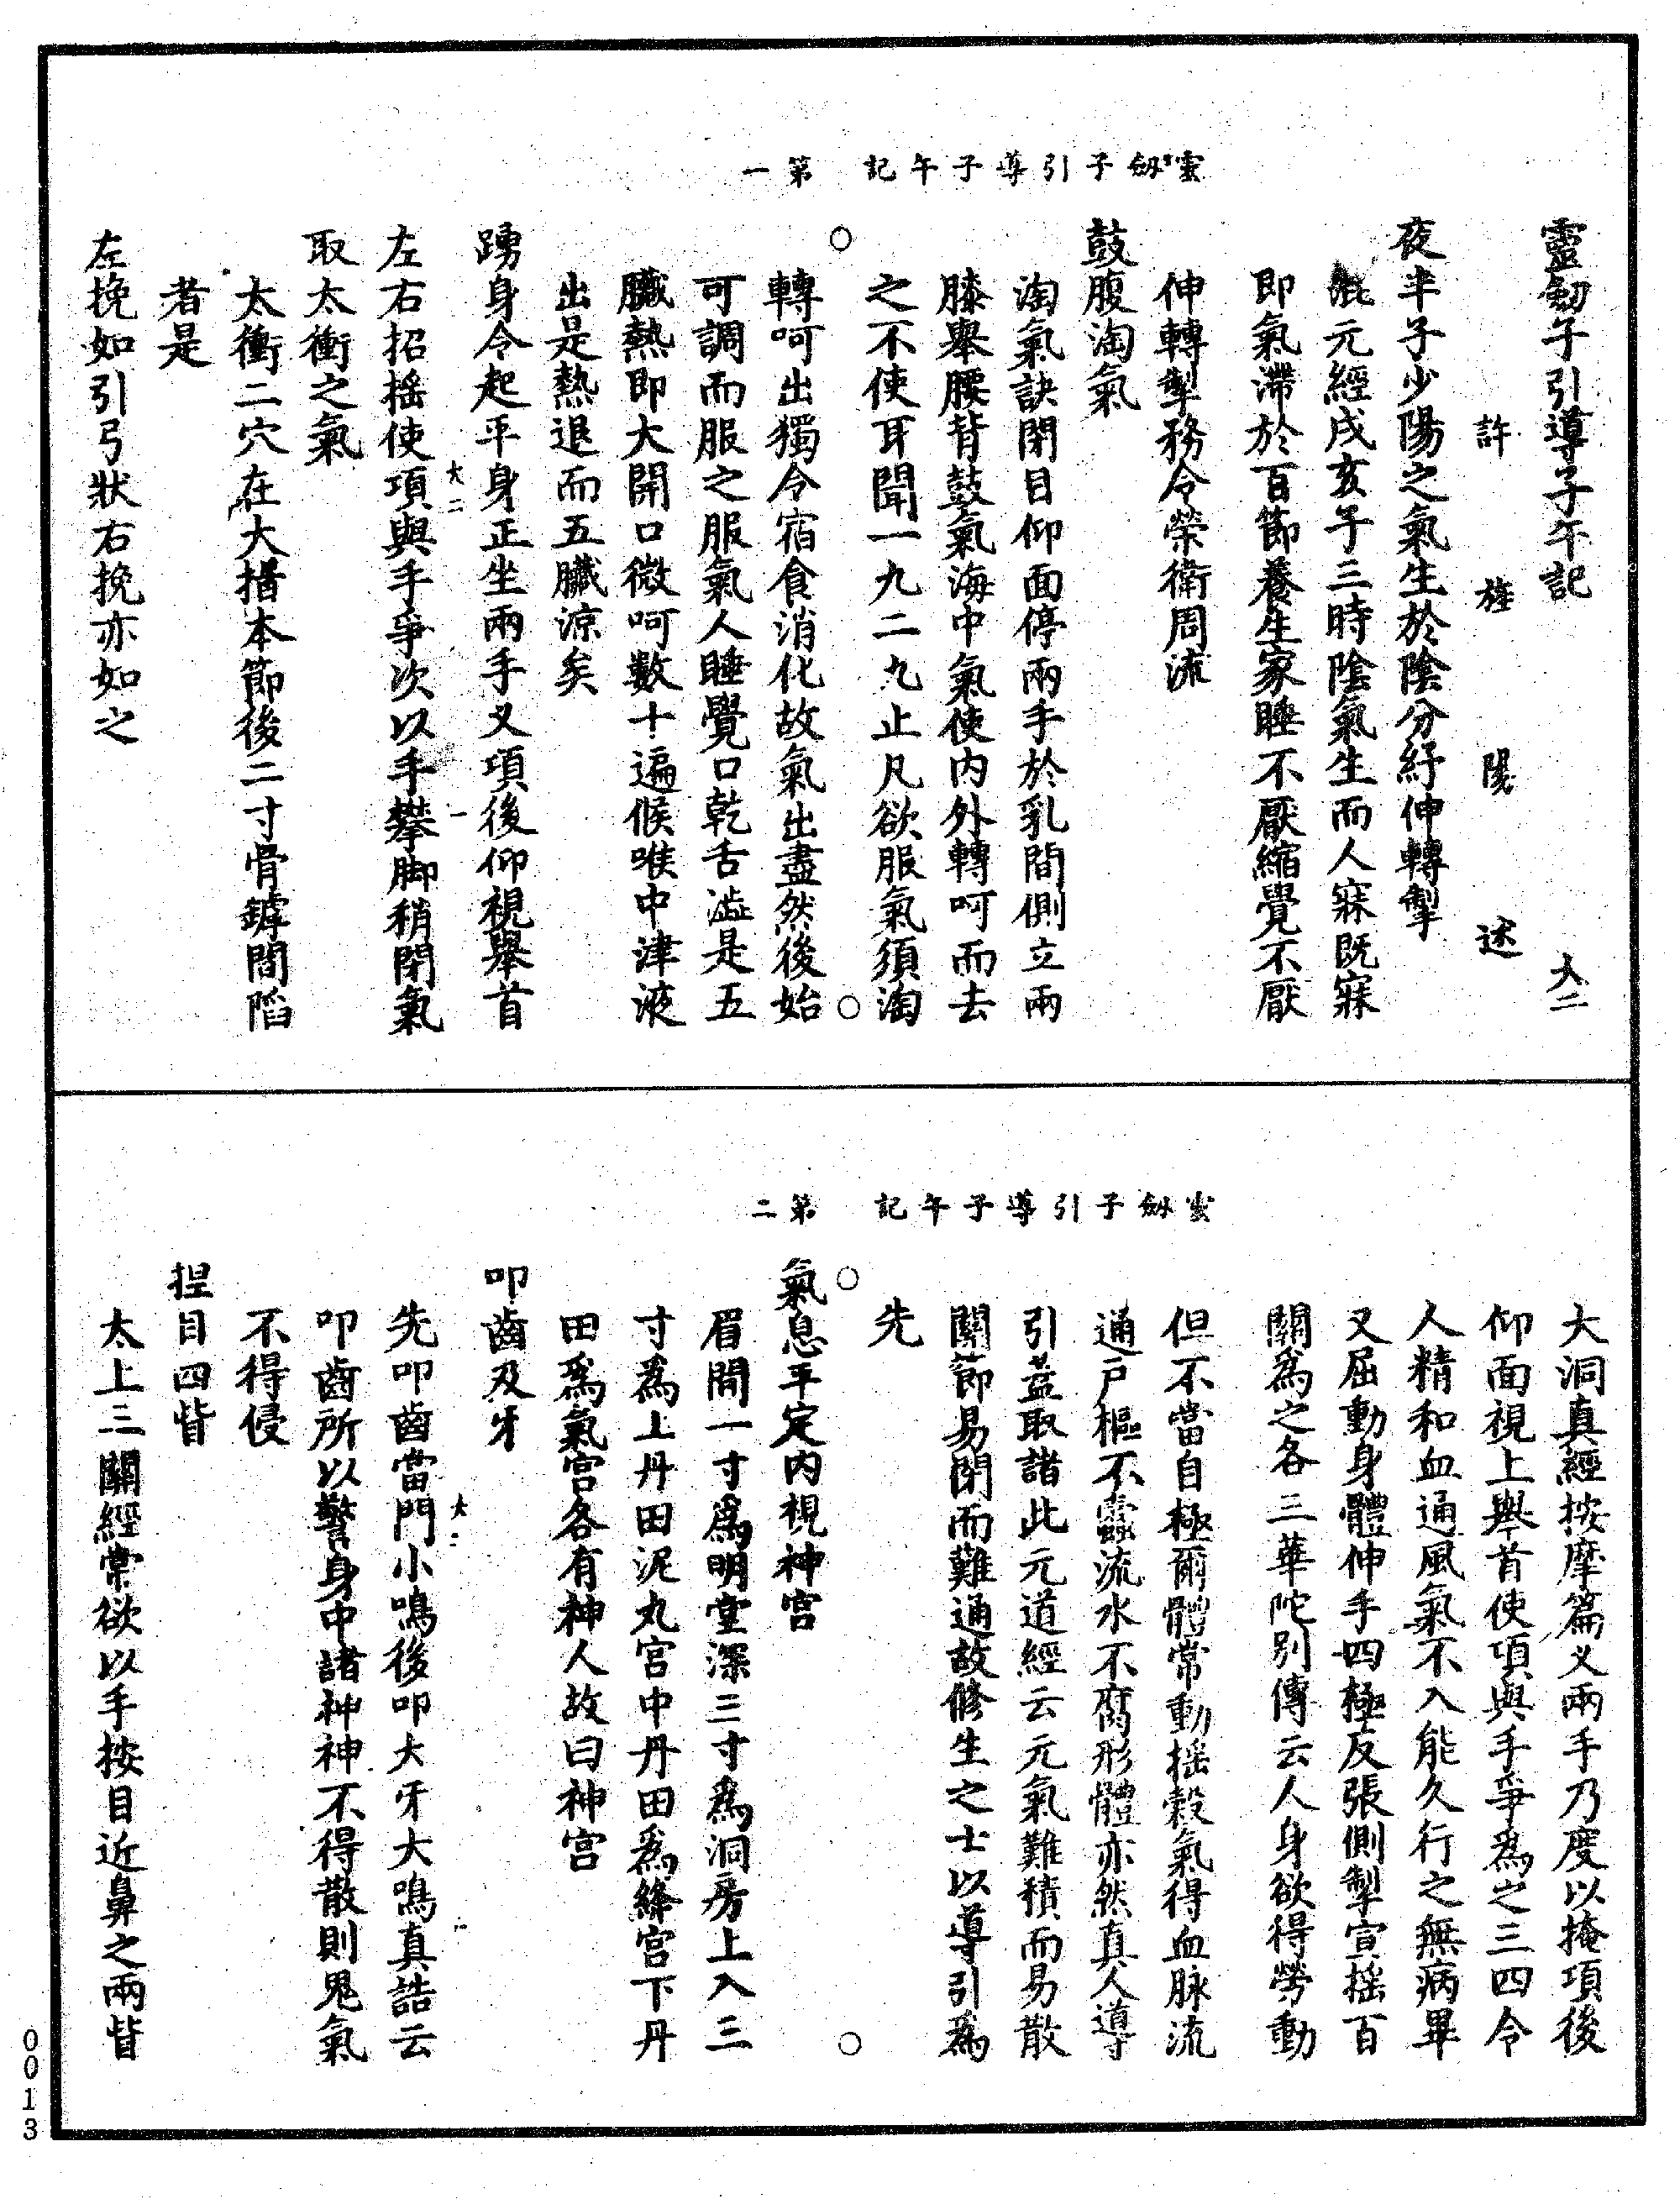 靈劒子引導子午記　第一
靈劒子引導子午記　大二
許旌陽述
夜半子少陽之氣生於陰分紓伸轉掣
混元經戌亥子三時陰氣生而人寐既寐
即氣滯於百節養生家睡不厭縮覺不厭
伸轉掣務令榮衛周流
鼓腹淘氣
淘氣訣閉目仰面停兩手於乳間側立兩
膝舉腰背鼓氣海中氣使内外轉呵而去
之不使耳聞一九二九止凡欲服氣須淘
○　○
轉呵出獨令宿食消化故氣出盡然後始
可調而服之服氣人睡覺口乾舌澁是五
臟熱即大開口微呵數十遍候喉中津液
出是熱退而五臟涼矣
踴身令起平身正坐兩手义項後仰視舉首
大二　一
左右招摇使項與手爭次以手攀脚稍閉氣
取太衝之氣
太衝二穴在大措本節後二寸骨罅間陷
者是
左挽如引弓狀右挽亦如之
靈劒子引導子午記　第二
大洞真經按摩篇义兩手乃度以掩項後
仰面視上舉首使項與手爭為之三四令
人精和血通風氣不入能久行之無病畢
又屈動身體伸手四極反張側掣宣摇百
關為之各三華陀別傳云人身欲得勞動
但不當自極爾體常動摇穀氣得血脉流
通戸樞不蠹流水不腐形體亦然真人導
引蓋取諸此元道經云元氣難積而易散
關節易閉而難通故修生之士以導引為
先
○　○
氣息平定内視神宮
眉間一寸為明堂深三寸為洞房上入三
寸為上丹田泥丸宮中丹田為絳宮下丹
田為氣宮各有神人故曰神宮
叩齒及牙
大二　一
先叩齒當門小鳴後叩大牙大鳴真誥云
叩齒所以警身中諸神神不得散則鬼氣
不得侵
揑目四眥
太上三關經常欲以手按目近鼻之兩眥
0013